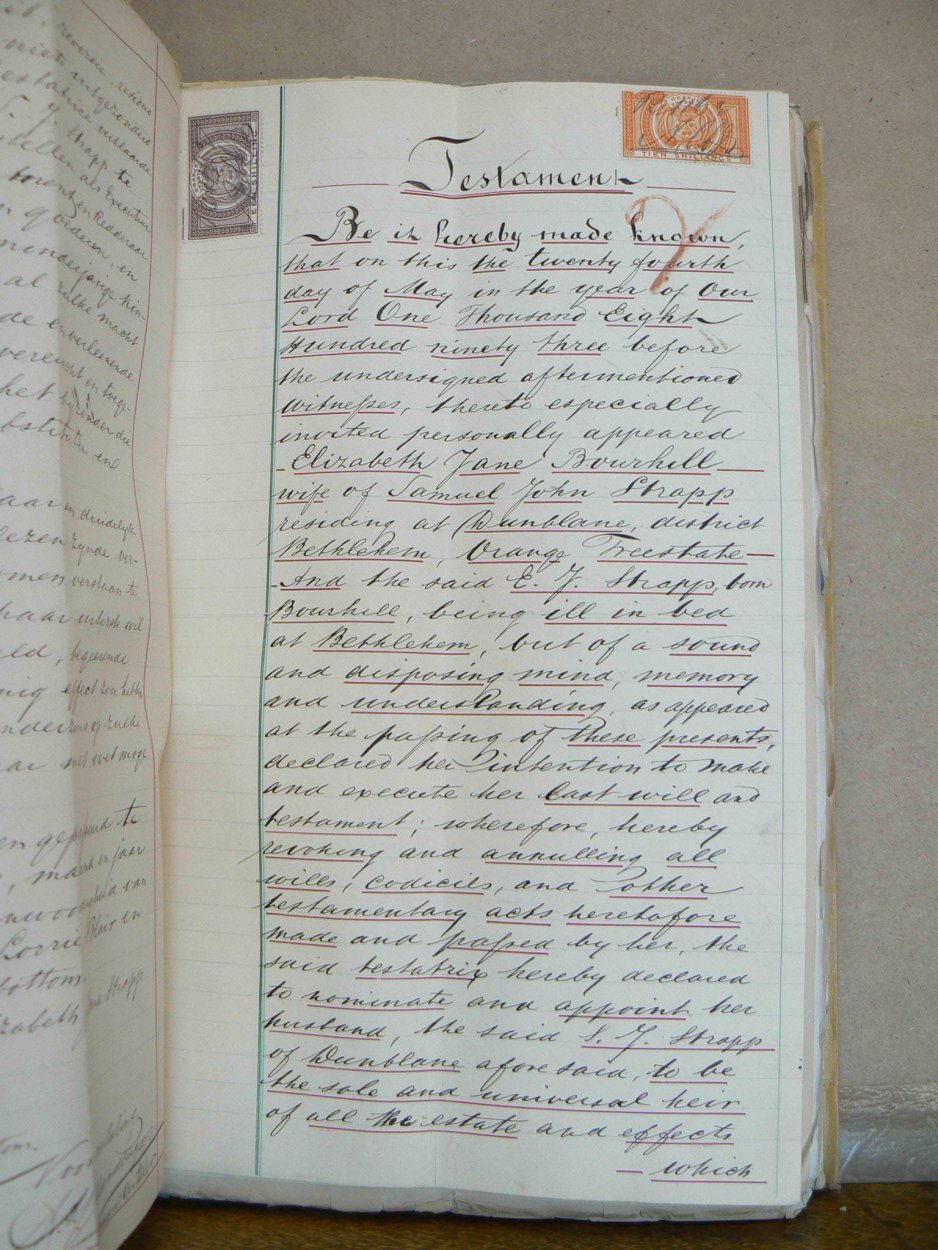 reversie, resisue
niet uitgezonderd
testatrice verklaarde
S. J. Strapp te
stellen als Executeur
en Redderaar
goederen, en
minderjarige kin-
al zulke macht
de en verleerende
vereischt en toege-
het bijzonder die
en
aar en duidelijk
lezen zynde ver-
omen verstaan te
haar uiterste wil
eld, begeerende
nig effect zou hebben
onderzins op zulke
aar met wet moge
en gepasseerd te
, maand en jaar
enwoordigheid van
Lorrie Blair en
bottom
zabeth Jane Strapp
EEN SHILLING
ORANJE
TIEN SHILLINGS
Testament
Be it hereby made known,
that on this the twenty fourth
day of May in the year of Our
Lord One Thousand Eight
Hundred ninety three before
the undersigned aftermentioned
witnesses, thereto especially
invited personally appeared
Elizabeth Jane Bourhill
wife of Samuel John Strapp
residing at Dunblane, district
Bethlehem, Orange Freestate
And the said E. J. Strapp, born
Bourhill, being ill in bed
at Bethlehem, but of a sound
and disposing mind, memory
and understanding, as appeared
at the passing of these presents,
declared her intention to make
and execute her last will and
testament; wherefore, hereby
revoking and annulling all
wills, codicils, and other
testamentary acts heretofore
made and passed by her, the
said testatrix hereby declared
to nominate and appoint her
husband, the said S. J. Strapp
of Dunblane aforesaid, to be
the sole and universal heir
of all the estate and effects
which